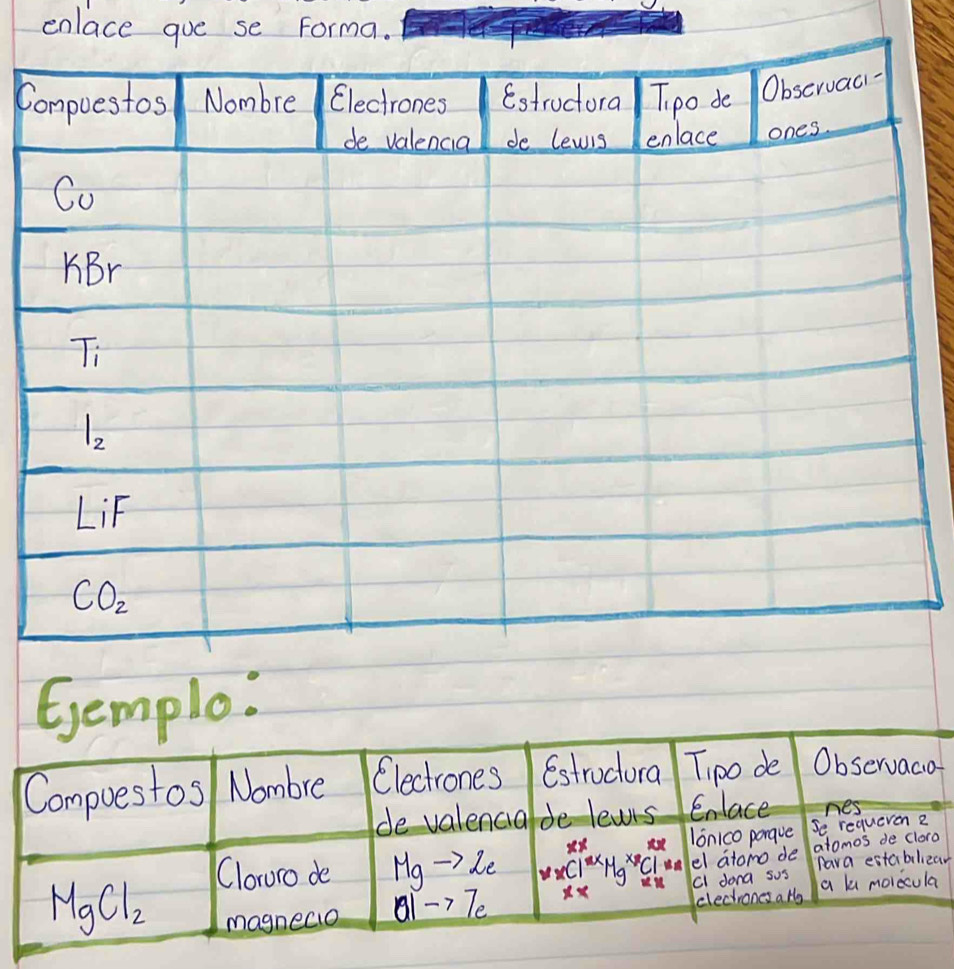 enlace que se Forma.
Compuestos Nombre Electrones de valencia Estructura de lewis Tipo de enlace Observaci-ones.
Cu
KBr
Ti
I2
LiF
CO2
Ejemplo:
Compuestos Nombre Electrones de valencia Estructura de lewis Tipo de Enlace Observacio-nes
MgCl2
Cloruro de
magnecio
Mg -> 2e
Cl -> 7e
xx xx
xxCl xx Mg xx Cl xx
xx xx
Iónico porque
el átomo de
Cl dona sus
electrones a Mg
Se requeren 2
atomos de cloro
Para estabilizar
a la molécula